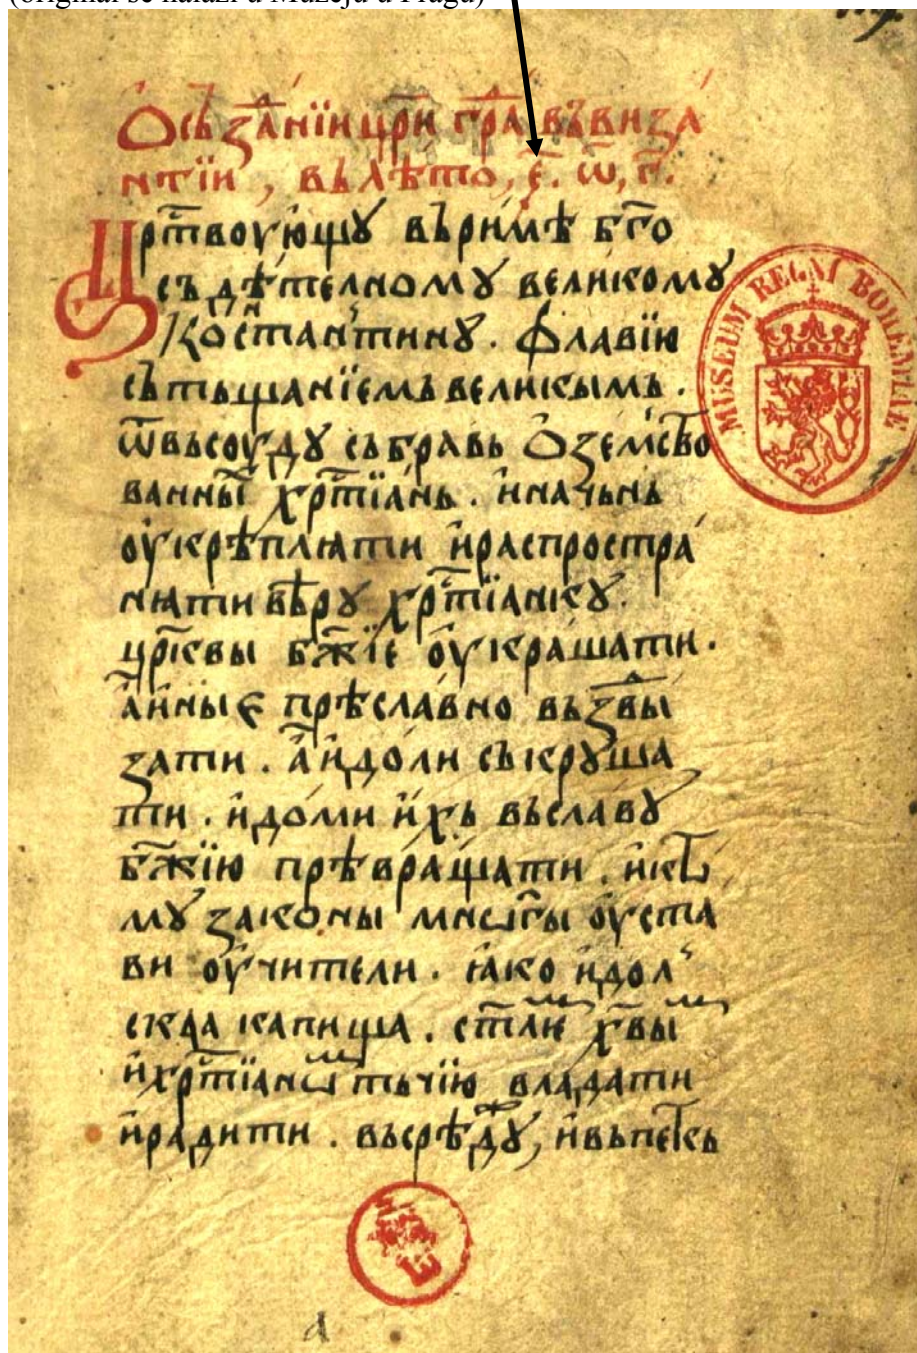 (original se nalazi u Muzeju u Pragu)
Ѡ създанїи цр҃и гра въ виза
нтїи, въ лѣто, є҃. ѡ҃, г҃.
Цр҃твоующꙋ въ римѣ бг҃о
съдѣтелномꙋ великомꙋ
Костантинꙋ. Флавїю
съ тьщанїемь великымь.
ѿвьсоудꙋ събравь Ѻземьство
ванныи хр҃тїань. и начьнь
оукрѣплꙗти и распростра
нꙗти вѣрꙋ хр҃тїанскꙋ.
цр҃квы бж҃їе оукрашати.
а ины є прѣславно въздвы
зати. а идоли съкрꙋша
ти. и доми ихь въ славꙋ
бж҃їю прѣвращати. и к то
мꙋ законы мнѡгы оуста
ви оучители. ꙗко идол
скаа капища. ст҃лїе хв҃ы
и хр҃тїанѡм тьчїю владати
и радити. въ срѣдꙋ, и въ петькь
MUSEUM REGNI BOHEMIAE